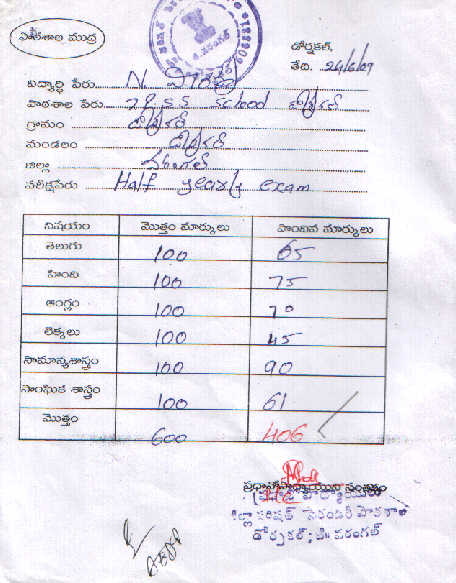 పాఠశాల ముద్ర
డోర్నకల్,
తేది. 24/6/09
విద్యార్థి పేరు N
పాఠశాల పేరు Z.P.S.S School డోర్నకల్
గ్రామం డోర్నకల్
మండలం డోర్నకల్
జిల్లా వరంగల్
పరీక్షపేరు Half yearly exam
విషయం మొత్తం మార్కులు పొందిన మార్కులు
తెలుగు 100 65
హింది 100 75
ఆంగ్లం 100 70
లెక్కలు 100 45
సామాన్యశాస్త్రం 100 90
సాంఘిక శాస్త్రం 100 61
మొత్తం 600 406
ప్రధానోపాధ్యాయుని సంతకం
ప్రధానోపాధ్యాయులు
జిల్లా పరిషత్ సెకండరీ పాఠశాల
డోర్నకల్; జి॥ వరంగల్